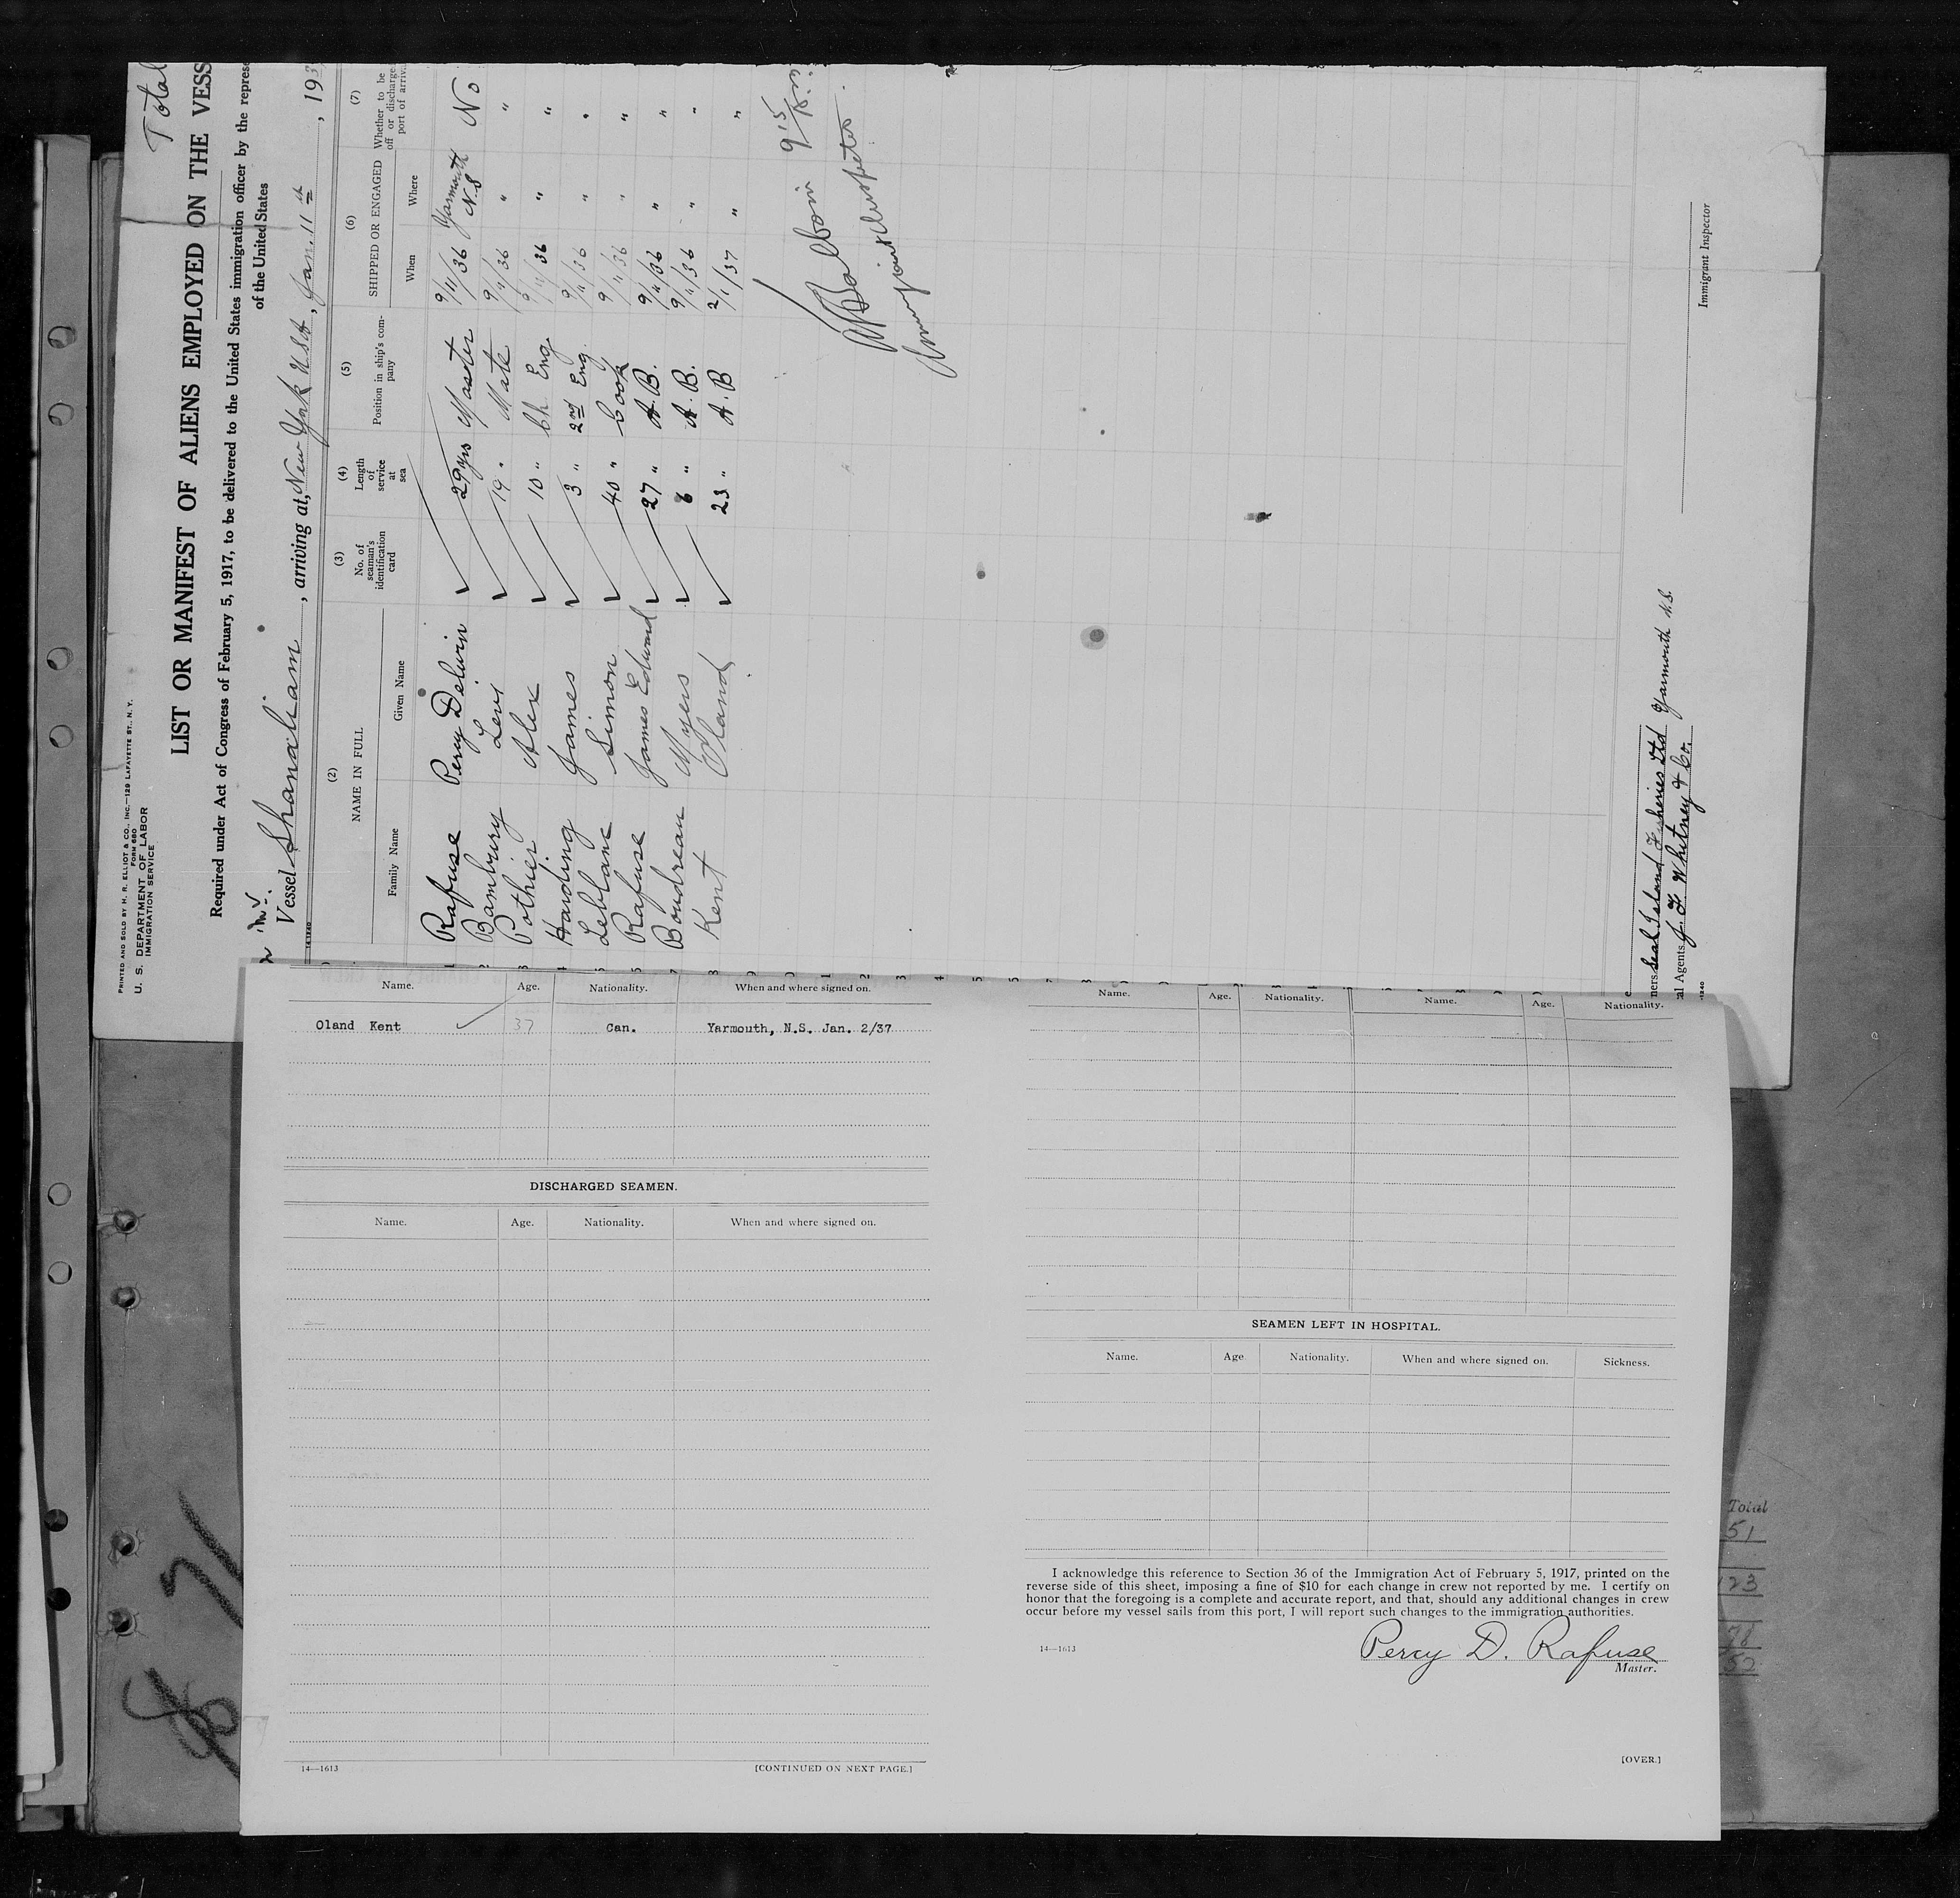 Total
PRINTED AND SOLD BY H. R. ELLIOT & CO., INC.—129 LAFAYETTE ST., N.Y.
FORM 680
U. S. DEPARTMENT OF LABOR
IMMIGRATION SERVICE
LIST OR MANIFEST OF ALIENS EMPLOYED ON THE VESS
Required under Act of Congress of February 5, 1917, to be delivered to the United States immigration officer by the represe
of the United States
Vessel Shanalian, arriving at, New York USA, Jan. 11th, 193
(2) (3) (4) (5) (6) (7)
NAME IN FULL No. of seaman's identification card Length of service at sea Position in ship's company SHIPPED OR ENGAGED Whether to be off or discharge port of arriva
Family Name Given Name When Where
1 Rafuse Percy Delwin 29 yrs Master 9/11/36 Yarmouth N.S No
2 Bambury Levi 19 " Mate 9/11/36 " "
3 Pothier Alex 10 " Ch. Eng 9/11/36 " "
4 Harding James 3 " 2nd Eng. 9/11/36 " "
5 Leblanc Simon 40 " Cook 9/11/36 " "
6 Rafuse James Edward 27 " A.B. 9/11/36 " "
7 Boudreau Myers 6 " A.B. 9/11/36 " "
8 Kent Oland 23 " A.B 2/1/37 " "
9
ners Seal Island Fisheries Ltd Yarmouth N.S.
al Agents J. F. Whitney & Co.
Immigrant Inspector
Name. Age. Nationality. When and where signed on.
Oland Kent 37 Can. Yarmouth, N.S. Jan. 2/37
DISCHARGED SEAMEN.
Name. Age. Nationality. When and where signed on.
14—1613 [CONTINUED ON NEXT PAGE.]
Name. Age. Nationality. Name. Age. Nationality.
SEAMEN LEFT IN HOSPITAL.
Name. Age Nationality. When and where signed on. Sickness.
I acknowledge this reference to Section 36 of the Immigration Act of February 5, 1917, printed on the
reverse side of this sheet, imposing a fine of $10 for each change in crew not reported by me. I certify on
honor that the foregoing is a complete and accurate report, and that, should any additional changes in crew
occur before my vessel sails from this port, I will report such changes to the immigration authorities.
14—1613
Percy D. Rafuse
Master.
[OVER.]
Total
51
123
78
52